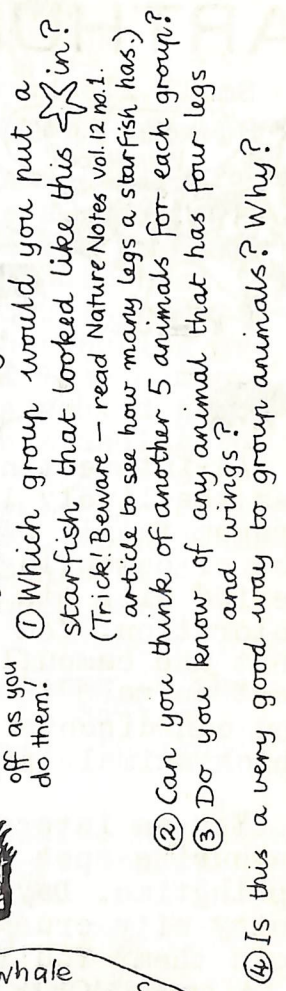 off as you
do them!
① Which group would you put a
starfish that looked like this in?
(Trick! Beware – read Nature Notes vol. 12 no. 1.
article to see how many legs a starfish has.)
② Can you think of another 5 animals for each group?
③ Do you know of any animal that has four legs
and wings?
④ Is this a very good way to group animals? Why?
whale